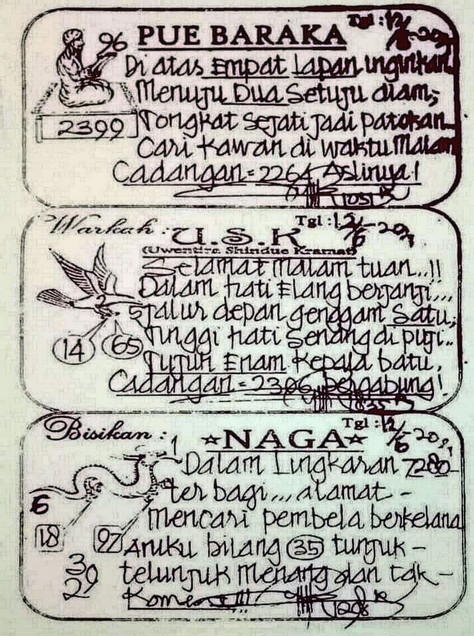 Tgl : 12/6-20
96
PUE BARAKA
Di atas Empat lapan inginkan
Menuju Dua Setuju diam,
2399
Tongkat Sejati jadi Patokan
Cari Kawan di waktu Malam
Cadangan = 2264 Aslinya!
Warkah :
Tgl : 12/6-20
U.S.K
(Uwentira Shindue Kramat)
Selamat Malam tuan..!!
Dalam hati Elang berjanji...
Jalur depan genggam Satu,
14
65
Tinggi hati Senang di puji..
Tujuh Enam Kepala batu,
Cadangan = 2306 bergabung!
Bisikan :
Tgl : 12/6-20
NAGA
Dalam Lingkaran 7280
ter bagi,,, alamat -
6
mencari pembela berkelana
18
97
Anuku bilang 35 tunjuk -
39
29
telunjuk Menang dan tdk -
Komen !!!